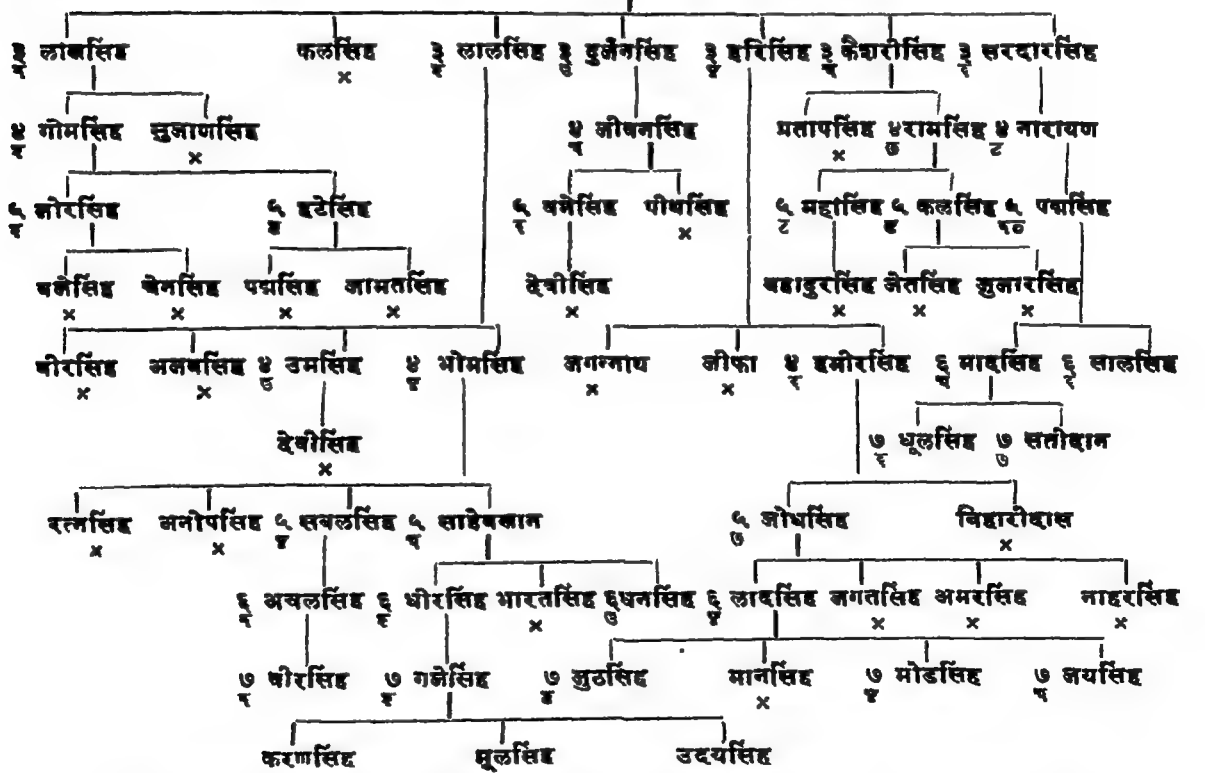 ३/१ लाखसिंह कलसिंह × ३/२ लालसिंह ३/३ दुर्जनसिंह ३/४ हरिसिंह ३/५ कैशरीसिंह ३/६ सरदारसिंह
४/१ गोमसिंह सुजाणसिंह × ४/५ जीवनसिंह प्रतापसिंह × ४/७ रामसिंह ४/८ नारायण
५/१ जोरसिंह ५/२ हटेसिंह ५/६ पीथसिंह × ५/८ महासिंह ५/९ कलसिंह ५/१० पद्मसिंह
बजेसिंह × चेनसिंह × पद्मसिंह × जामतसिंह × देवीसिंह × बहादुरसिंह × जेतसिंह × जुजारसिंह ×
वीरसिंह × अजबसिंह × ४/३ उमसिंह ४/४ भोमसिंह जगन्नाथ × जीफा × ४/६ हमीरसिंह ६/५ मादसिंह ६/६ लालसिंह
देवीसिंह × ७/६ धूलसिंह ७/७ सतीदान
रत्नसिंह × अनोपसिंह × ५/४ सबलसिंह ५/५ साहेबखान ५/७ जोधसिंह बिहारीदास ×
६/१ अचलसिंह ६/२ धीरसिंह भारतसिंह × ६/३ धनसिंह ६/४ लादसिंह जगतसिंह × अमरसिंह × नाहरसिंह ×
७/१ वीरसिंह ७/२ गजेसिंह ७/३ जुठसिंह मानसिंह × ७/४ मोडसिंह ७/५ जयसिंह
करणसिंह मूलसिंह उदयसिंह